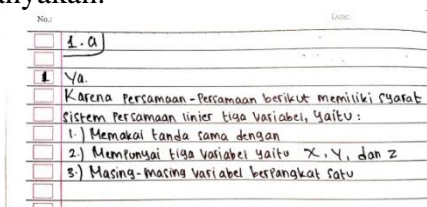 No.:
Date:
1.a
1 Ya.
Karena Persamaan-Persamaan berikut memiliki syarat
sistem Persamaan linier tiga Variabel, yaitu:
1.) Memakai tanda sama dengan
2.) Mempunyai tiga variabel yaitu X, Y, dan Z
3.) Masing-masing variabel berpangkat satu